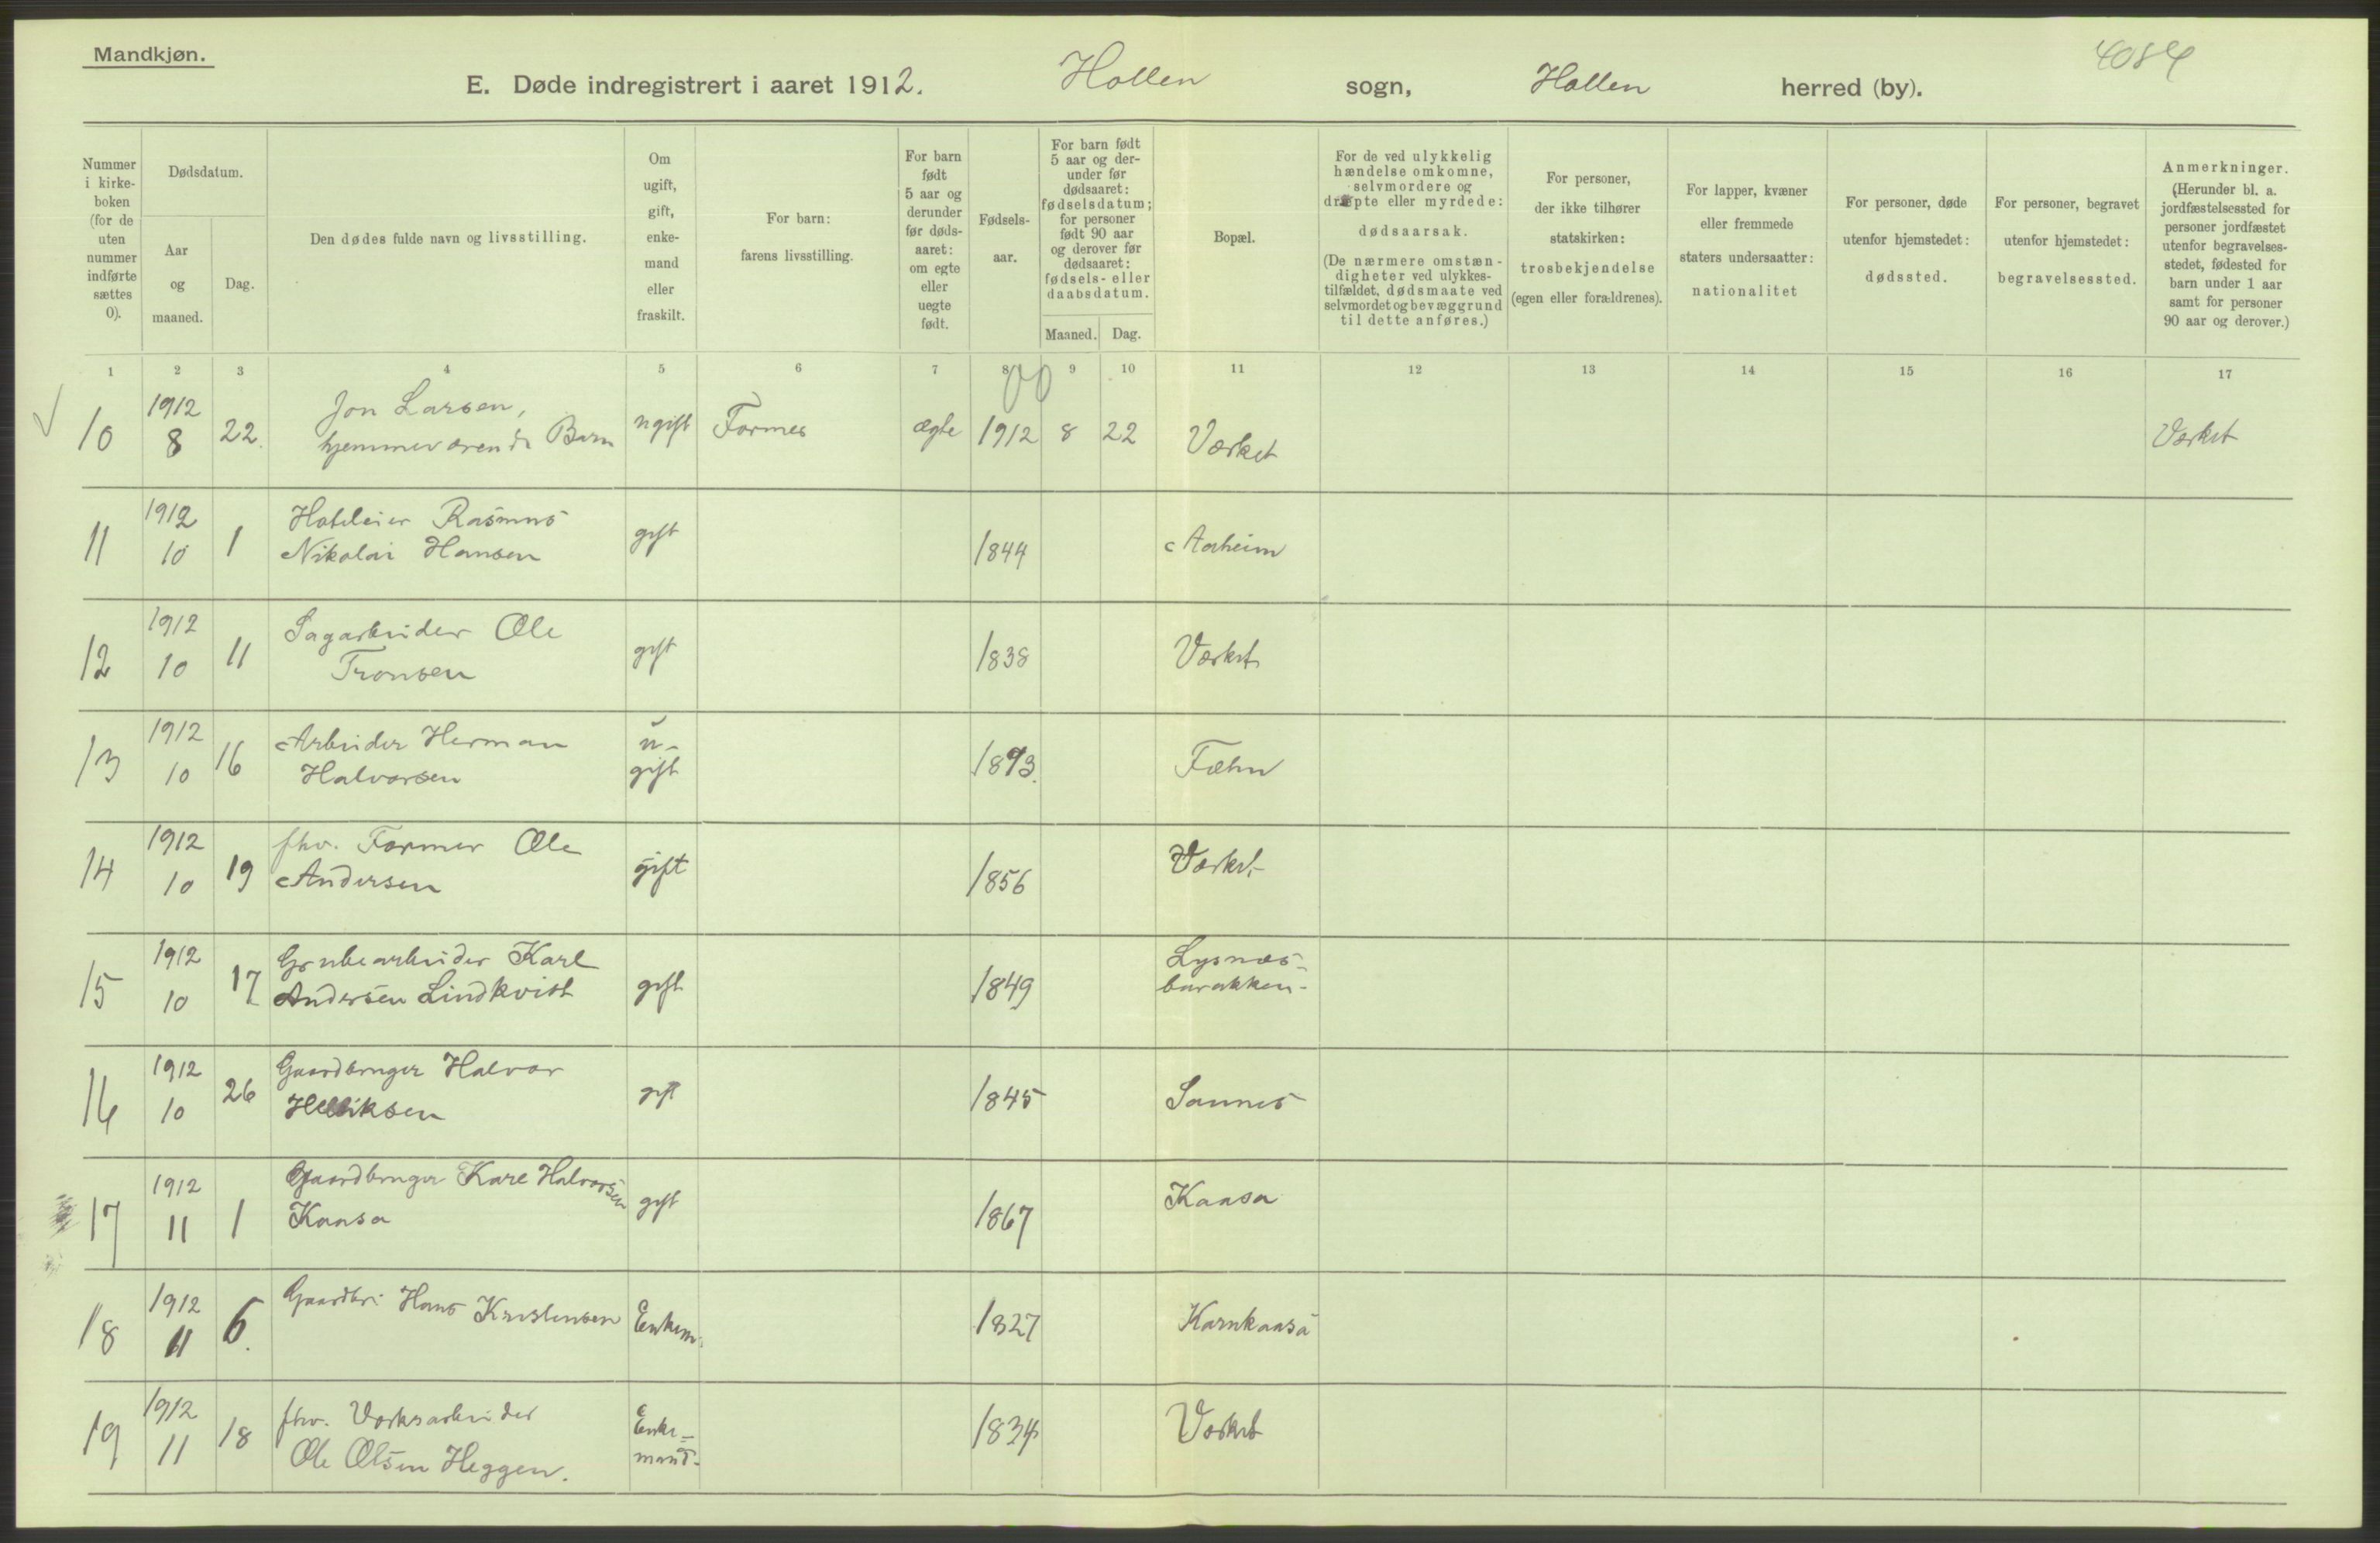 Mandkjøn.
4084
E. Døde indregistrert i aaret 1912. Hollen sogn, Hollen herred (by).
Nummer i kirke-boken (for de uten nummer indførte sættes 0).
Dødsdatum.
Aar og maaned.
Dag.
Den dødes fulde navn og livsstilling.
Om ugift, gift, enke-mand eller fraskilt.
For barn: farens livsstilling.
For barn født 5 aar og derunder før døds-aaret: om egte eller uegte født.
Fødsels-aar.
For barn født 5 aar og der-under før dødsaaret: fødselsdatum; for personer født 90 aar og derover før dødsaaret: fødsels- eller daabsdatum.
Maaned. Dag.
Bopæl.
For de ved ulykkelig hændelse omkomne, selvmordere og dræpte eller myrdede: dødsaarsak. (De nærmere omstæn-digheter ved ulykkes-tilfældet, dødsmaate ved selvmordet og bevæggrund til dette anføres.)
For personer, der ikke tilhører statskirken: trosbekjendelse (egen eller forældrenes).
For lapper, kvæner eller fremmede staters undersaatter: nationalitet
For personer, døde utenfor hjemstedet: dødssted.
For personer, begravet utenfor hjemstedet: begravelsessted.
Anmerkninger. (Herunder bl. a. jordfæstelsessted for personer jordfæstet utenfor begravelses-stedet, fødested for barn under 1 aar samt for personer 90 aar og derover.)
1 2 3 4 5 6 7 8 9 10 11 12 13 14 15 16 17
10 1912 8 22. Jon Larsen, hjemmeværende Barn ugift Former ægte 1912 8 22 Værket Værket
11 1912 10 1 Hoteleier Rasmus Nikolai Hansen gift 1844 Aaheim
12 1912 10 11 Sagarbeider Ole Tronsen gift 1838 Værket
13 1912 10 16 Arbeider Herman Halvorsen u-gift 1893. Fæhn
14 1912 10 19 fhv. Former Ole Andersen gift 1856 Værket
15 1912 10 17 Grubearbeider Karl Andersen Lindkvist gift 1849 Lysnæs-barakken-
16 1912 10 26 Gaardbruger Halvor Helliksen gift 1845 Sannes
17 1912 11 1 Gaardbruger Karl Halvorsen Kaasa gift 1867 Kaasa
18 1912 11 6. Gaardbr: Hans Kristensen Enkem. 1827 Karnkaasa
19 1912 11 18 fhv. Værksarbeider Ole Olsen Heggen. Enke=mand. 1834 Værket